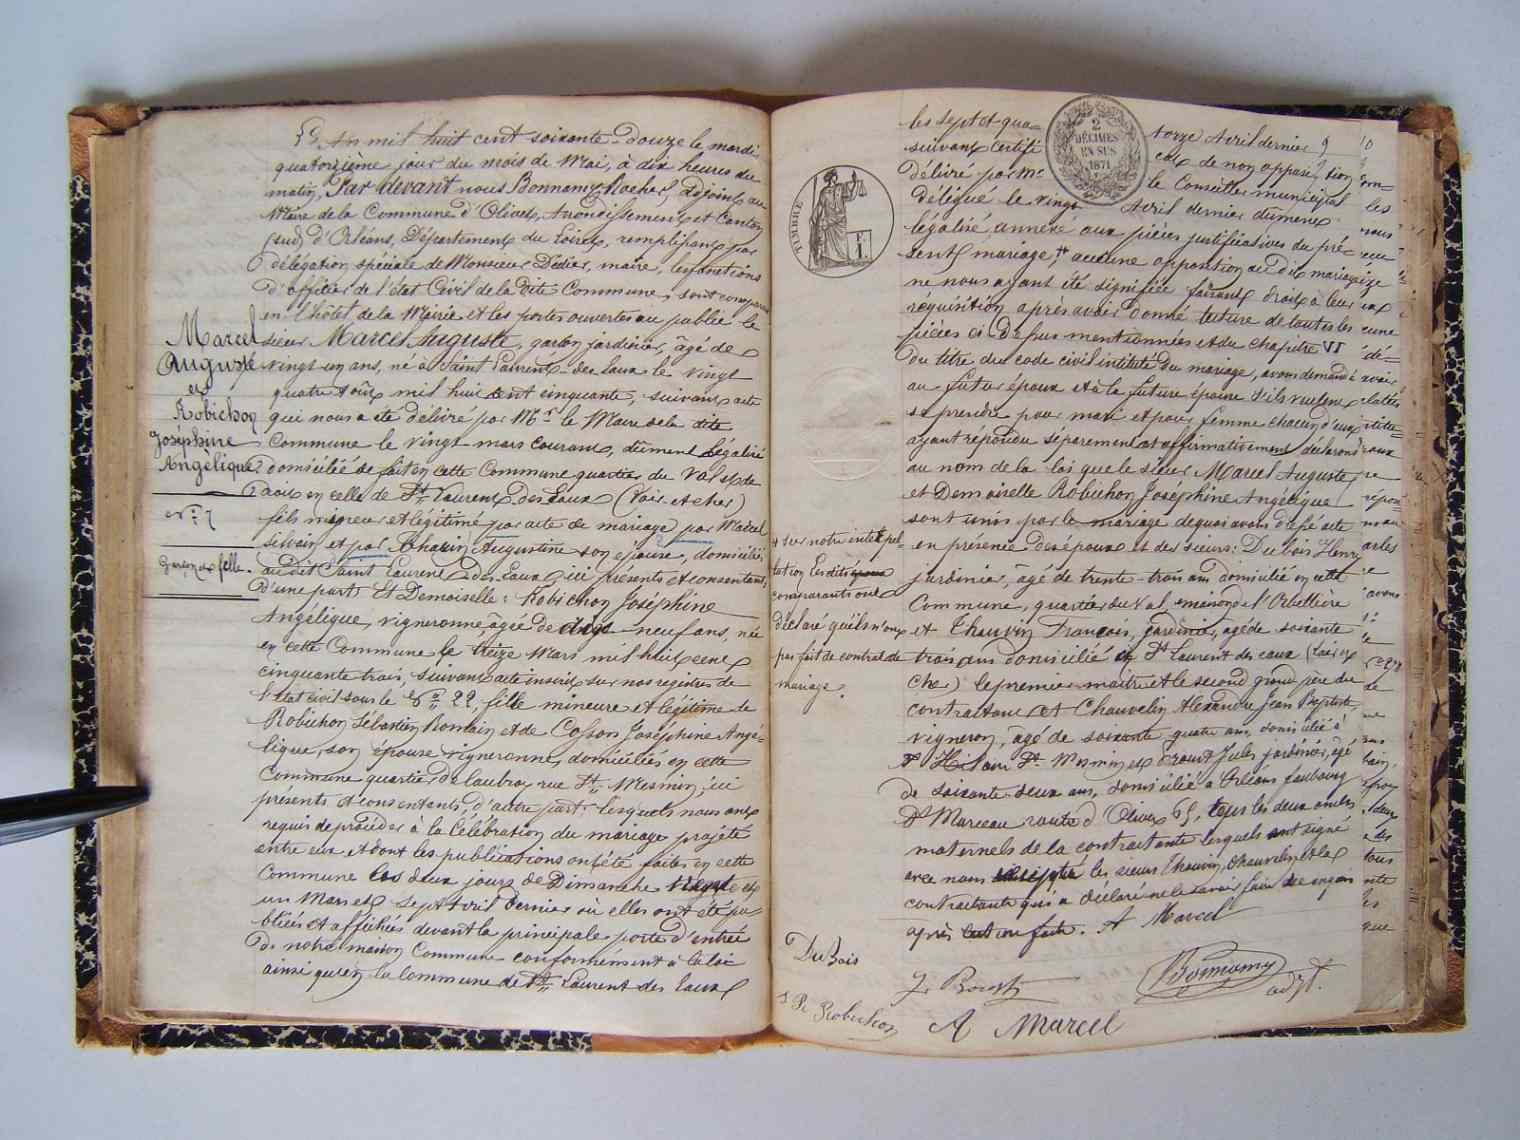 L'An mil huit cent soixante-douze le mardi
quatorzième jour du mois de Mai, à dix heures du
matin, Par devant nous Bonnamy Rocher, adjoint au
Maire de la Commune d'Olivet, Arrondissement et Canton
(sud) d'Orléans, Département du Loiret, remplissant par
délégation spéciale de Monsieur Didier, maire, les fonctions
d'officier de l'état Civil de la dite Commune, sont comparus
en l'hôtel de la Mairie et les portes ouvertes au public le
sieur Marcel Auguste, garçon jardinier, âgé de
vingt un ans, né à Saint Laurent-des Eaux le vingt
quatre Août mil huit cent cinquante, suivant acte
qui nous a été délivré par Mr le Maire de la dite
Commune le vingt mars courant, dûment légalisé
domicilié de fait en cette Commune quartier du Val et de
droit en celle de St Laurent des Eaux (Loir et cher)
fils mineur et légitimé par acte de mariage par Marcel
Silvain et par Chavin Augustine son épouse, domiciliés
au dit Saint Laurent des Eaux ici présents et consentants
d'une part Et Demoiselle : Robichon Joséphine
Angélique, vigneronne, âgée de dix neuf ans, née
en cette Commune le treize Mars mil huit cent
cinquante trois, suivant acte inscrit sur nos registres de
l'état civil sous le No 22, fille mineure et légitime de
Robichon Sébastien Romain et de Cosson Joséphine Angé=
lique, son épouse vigneronne, domiciliés en cette
Commune quartier de Caubray rue St Mesmin, ici
présents et consentants d'autre part: lesquels nous ont
requis de procéder à la Célébration du mariage projeté
entre eux et dont les publications ont été faites en cette
Commune les deux jours de Dimanche trente et
un Mars et sept Avril dernier où elles ont été pu=
bliées et affichées devant la principale porte d'entrée
de notre maison Commune conformément à la loi
ainsi qu'en la Commune de St Laurent des Eaux
Marcel
Auguste
et
Robichon
Joséphine
Angèlique
No 7
Garçon et fille.
les sept et qua=
torze Avril dernier
suivant Certifi
cat de non opposition
Délivré par Mr
le Conseiller municipal
délégué le vingt Avril dernier dûment
légalisé, annexé aux pièces justificatives du pré=
sent mariage, aucune opposition au dit mariage
ne nous ayant été signifiée faisant droit à leur
réquisition après avoir donné lecture de toutes les
pièces ci Dessus mentionnées et du chapitre VI
du titre du code civil intitulé du mariage, avons demandé
au futur époux et à la future épouse s'ils veulent
se prendre pour mari et pour femme chacun d'eux
ayant répondu séparément et affirmativement déclarons
au nom de la loi que le sieur Marcel Auguste
et Demoiselle Robichon Joséphine Angélique
sont unis par le mariage de quoi avons dressé acte
en présence des époux et des sieurs : Dubois Henry
jardinier, âgé de trente-trois ans domicilié en cette
Commune, quartier du Val, maison de l'Orbellière
et Chauvin François, jardinier, agé de soixante
trois ans domicilié à St Laurent des eaux (Loir et
Cher) le premier maître et le second grand père du
contractant Et Chauvelin Alexandre Jean Baptiste,
vigneron, âgé de soixante quatre ans, domicilié à
St Hilaire St Mesmin et Proust Jules jardinier, agé
de soixante deux ans, domicilié à Orléans faubourg
St Marceau route d'Olivet 65, tous les deux oncles
maternels de la contractante lesquels ont signé
avec nous excepté les sieurs Chauvin, Chauvelin et la
contractante qui a déclaré ne le savoir faire de ce requis
après lecture faite. A Marcel
+ sur notre interpel=
lation les dits
comparants ont
déclaré qu'ils n'ont
pas fait de contrat de
mariage.
TIMBRE
2
DÉCIMES
EN SUS
1871
DuBois
J. Proust
Bonnamy
adjt.
Robichon
A Marcel